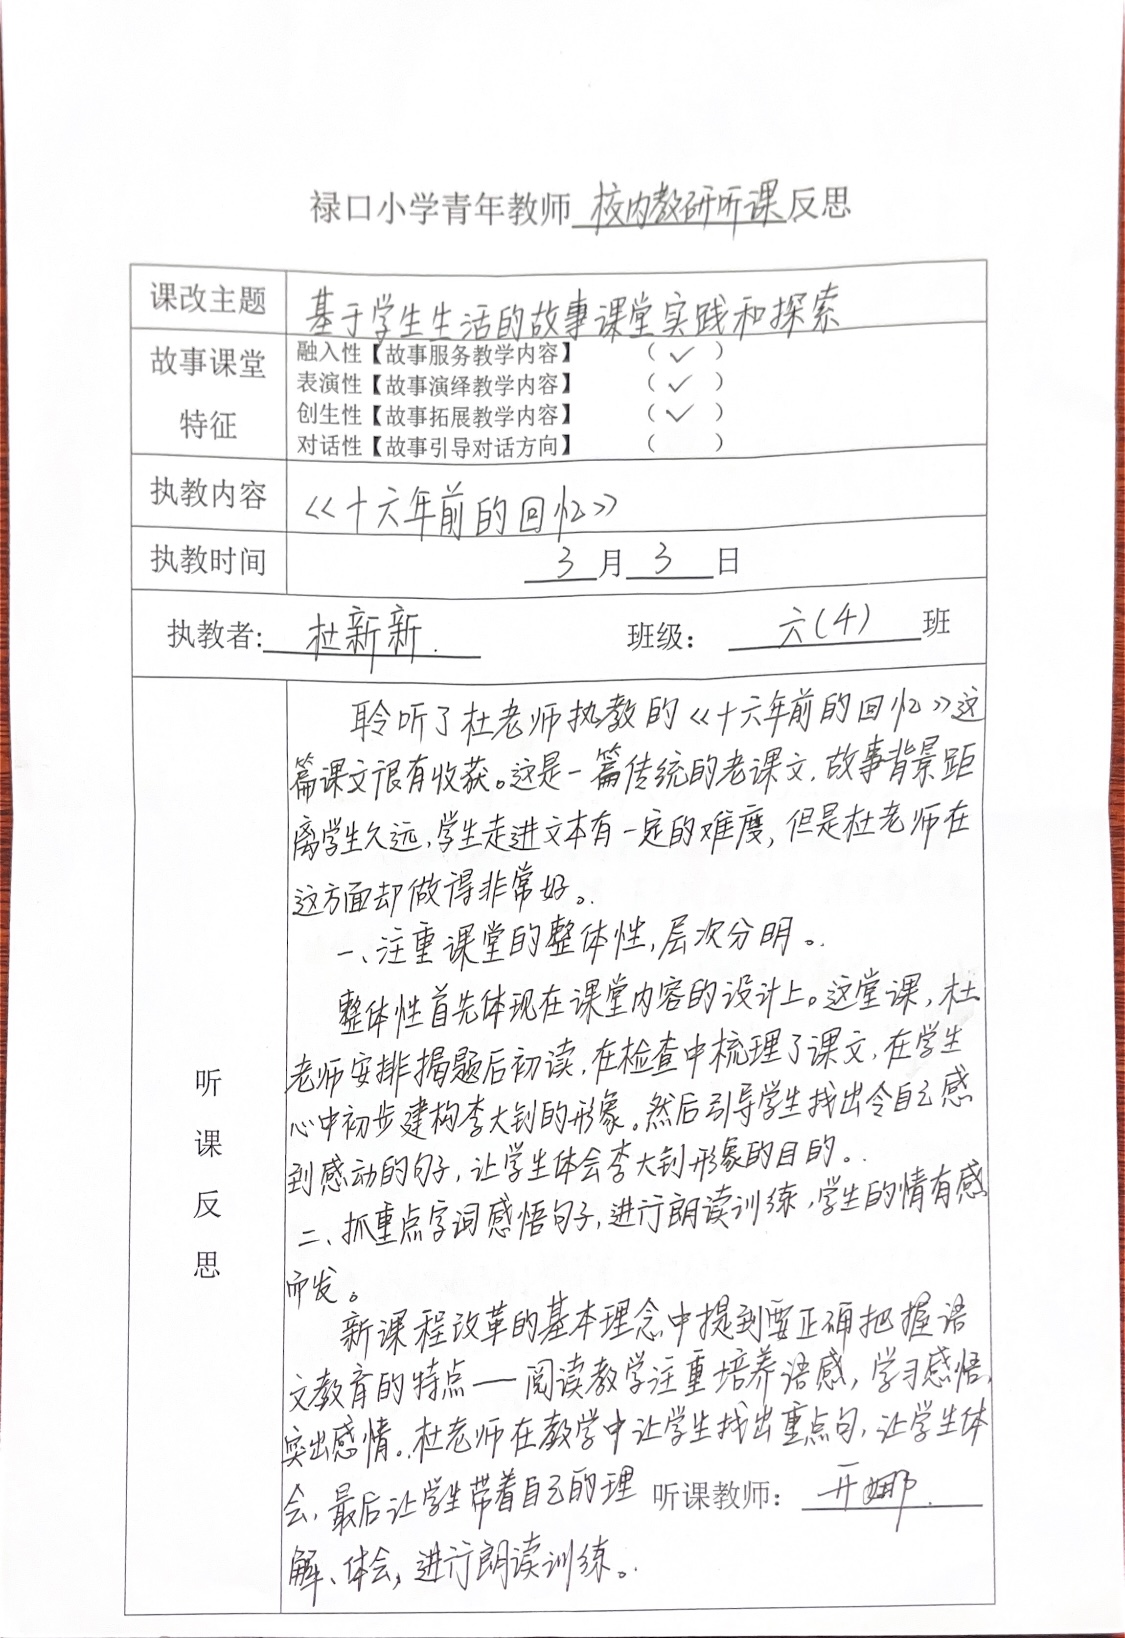 禄口小学青年教师 校内教研听课 反思
课改主题
基于学生生活的故事课堂实践和探索
故事课堂
特征
融入性【故事服务教学内容】 （ ✓ ）
表演性【故事演绎教学内容】 （ ✓ ）
创生性【故事拓展教学内容】 （ ✓ ）
对话性【故事引导对话方向】 （ ）
执教内容
《十六年前的回忆》
执教时间
3 月 3 日
执教者: 杜新新. 班级： 六(4) 班
听
课
反
思
聆听了杜老师执教的《十六年前的回忆》这
篇课文很有收获。这是一篇传统的老课文，故事背景距
离学生久远，学生走进文本有一定的难度，但是杜老师在
这方面却做得非常好。
一、注重课堂的整体性，层次分明。
整体性首先体现在课堂内容的设计上。这堂课，杜
老师安排揭题后初读，在检查中梳理了课文，在学生
心中初步建构李大钊的形象。然后引导学生找出令自己感
到感动的句子，让学生体会李大钊形象的目的。
二、抓重点字词感悟句子，进行朗读训练，学生的情有感
而发。
新课程改革的基本理念中提到要正确把握语
文教育的特点——阅读教学注重培养语感，学习感悟，
突出感情。杜老师在教学中让学生找出重点句，让学生体
会，最后让学生带着自己的理
解、体会，进行朗读训练。
听课教师： 娜.